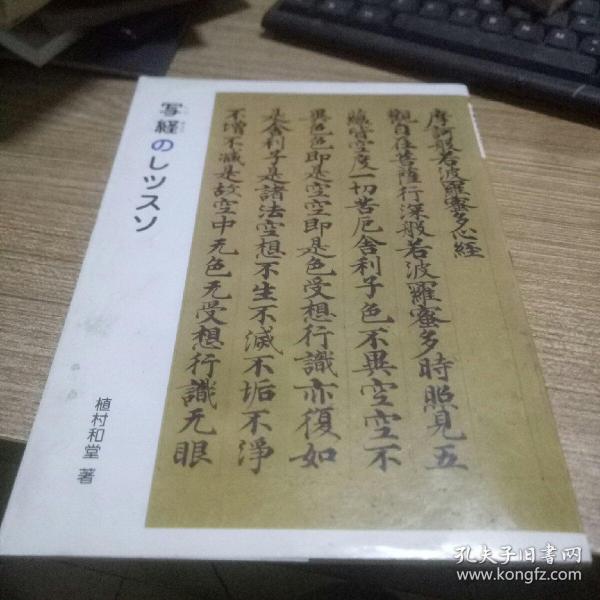 写経のレッスン
植村和堂 著
摩訶般若波羅蜜多心経
觀自在菩薩行深般若波羅蜜多時照見五
蘊皆空度一切苦厄舎利子色不異空空不
異色色即是空空即是色受想行識亦復如
是舎利子是諸法空想不生不滅不垢不淨
不増不減是故空中无色无受想行識无眼
孔夫子旧书网
www.kongfz.com